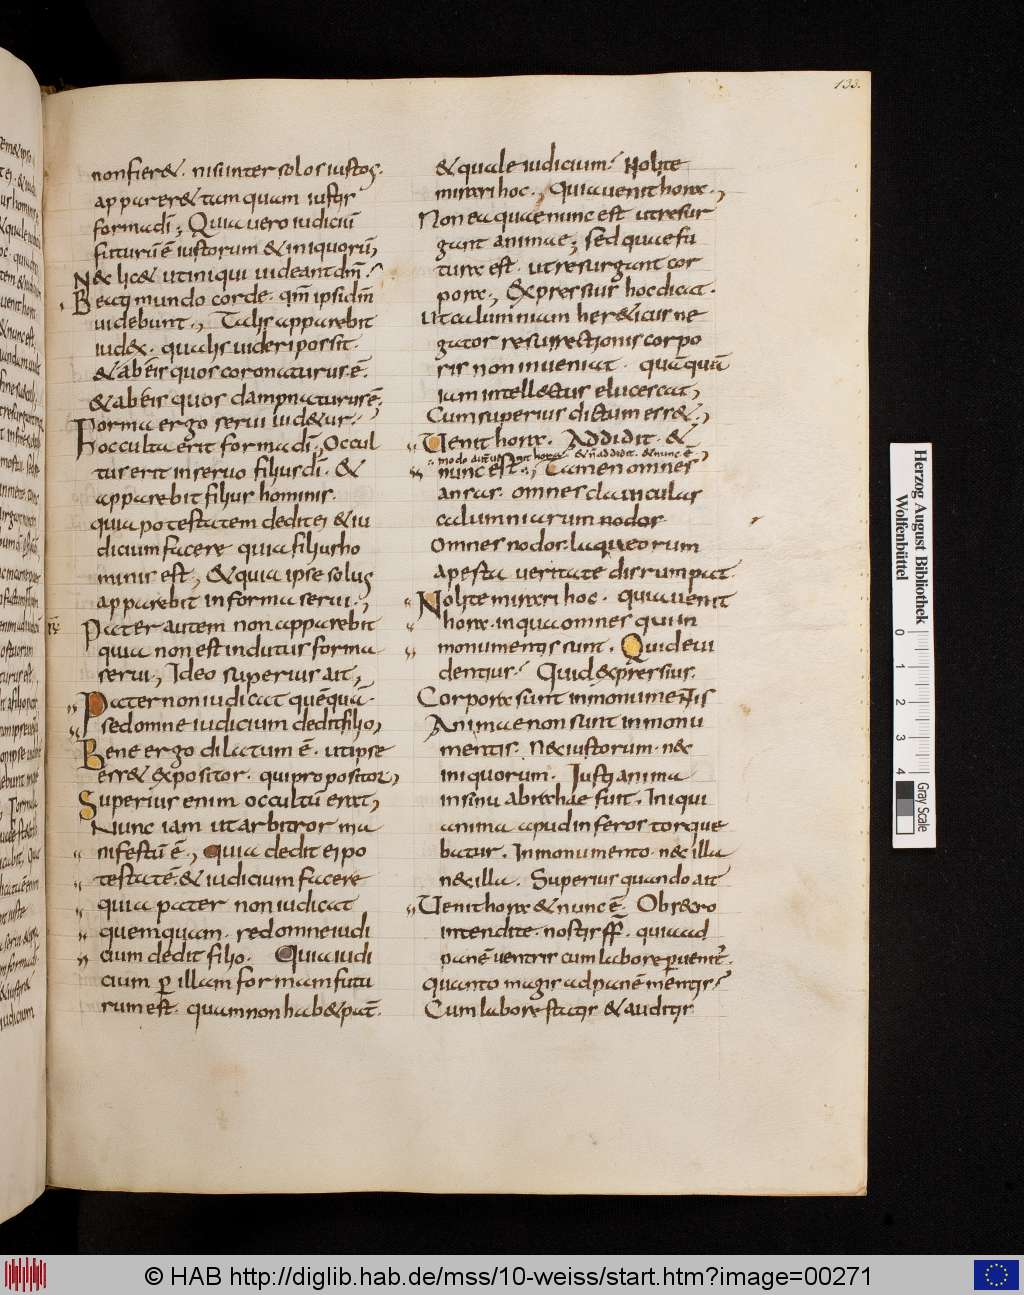 133.
non fier&. nisi inter solos iustos.
appareret tamquam iustis
forma di; Quia uero iudiciū
futurū ē iustorum & iniquorū,
Nec lic& ut iniqui uideant dm̄.
Beati mundo corde. qm̄ ipsi dm̄
uidebunt., Talis apparebit
iudex. qualis uideri possit.
& ab eis quos coronaturus ē.
& ab eis quos damnaturus ē;
Forma ergo serui uid&ur.
occulta erit forma di, Occul
tus erit in seruo filius di. &
apparebit filius hominis.
quia potestatem dedit ei & iu
dicium facere quia filius ho
minis est, & quia ipse solus
apparebit in forma serui.,
Pater autem non apparebit
quia non est indutus forma
serui, Ideo superius ait,
Pater non iudicat quēquā.
sed omne iudicium dedit filio,
Bene ergo dilatum ē. ut ipse
ess& expositor. qui propositor,
Superius enim occultū erat,
Nunc iam ut arbitror ma
nifestū ē., Quia dedit ei po
testatē. & iudicium facere
quia pater non iudicat
quemquam. sed omne iudi
cium dedit filio. Quia iudi
cium p illam formam futu
rum est. quam non hab& pat̄.
& quale iudicium? Nolite
mirari hoc., Quia uenit hora.,
Non ea quae nunc est ut resur
gant animae; sed quae fu
tura est. ut resurgant cor
pora., Expressius hoc dicat.
ut calumniam her&icus ne
gator resurrectionis corpo
ris non inueniat. quāquā
iam intellectus elucescat,
Cum superius dictum ess&.,
Uenit hora. Addidit. &
modo aut̄ uenit hora & n̄ addidit. & nunc ē
nunc est., Tamen omnes
ansas. omnes clauiculas
calumniarum nodos
omnes nodos. laqueorum
apesta ueritate disrumpat.
Nolite mirari hoc. quia uenit
hora. in qua omnes qui in
monumentis sunt. Quid eui
dentius? Quid expressius.
Corpora sunt in monumentis
Animae non sunt in monu
mentis. nec iustorum. nec
iniquorum. Iusti anima
in sinu abrahae fuit. Iniqui
anima apud inferos torque
batur. In monumento. nec illa
nec illa. Superius quando ait
Uenit hora & nunc ē. Obsecro
intendite. nostis ff̄. quia ad
panē uentris cum labore puenit.
quanto magis ad panē mentis?
Cum labore statis & auditis
Herzog August Bibliothek
Wolfenbüttel
0 1 2 3 4
Gray Scale
© HAB http://diglib.hab.de/mss/10-weiss/start.htm?image=00271